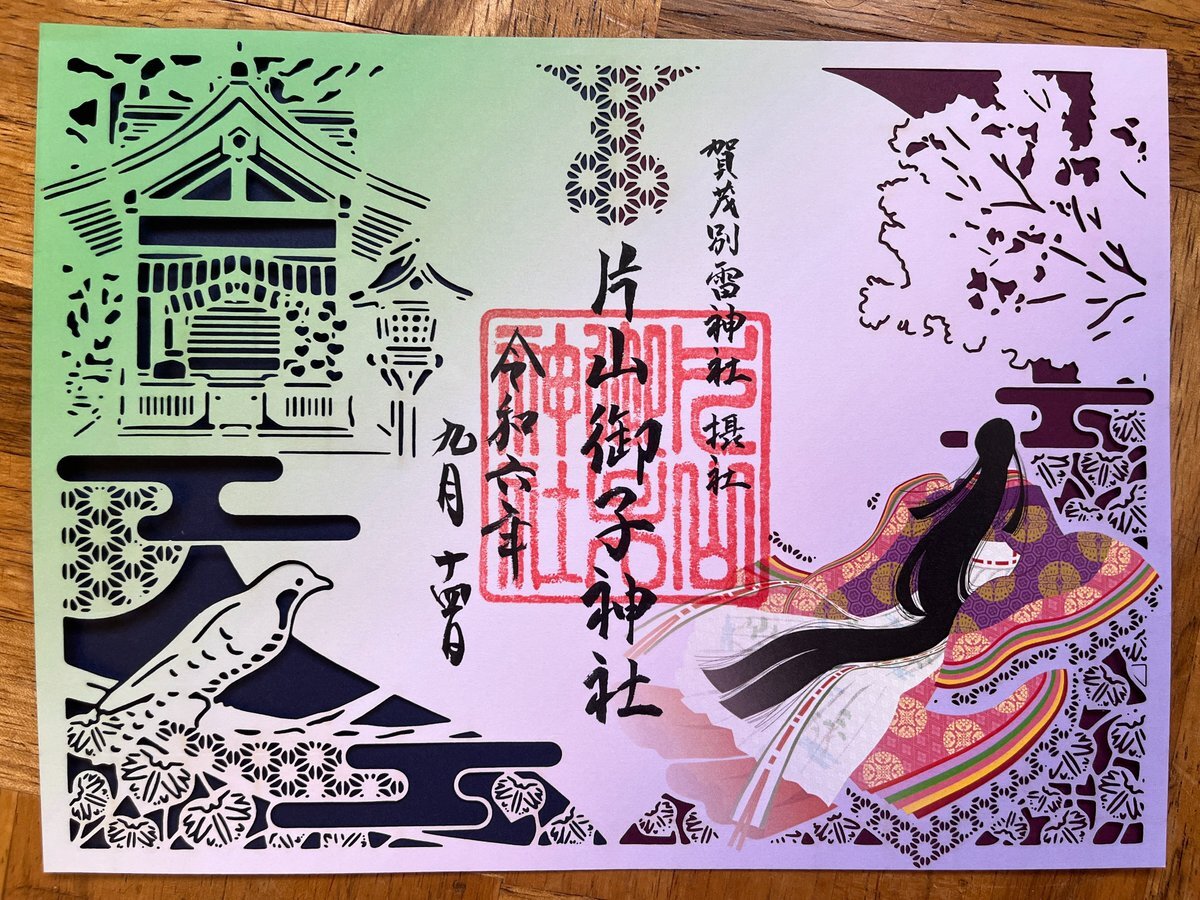 賀茂別雷神社 摂社
片山御子神社
令和六年
九月 十四日
片山御子神社